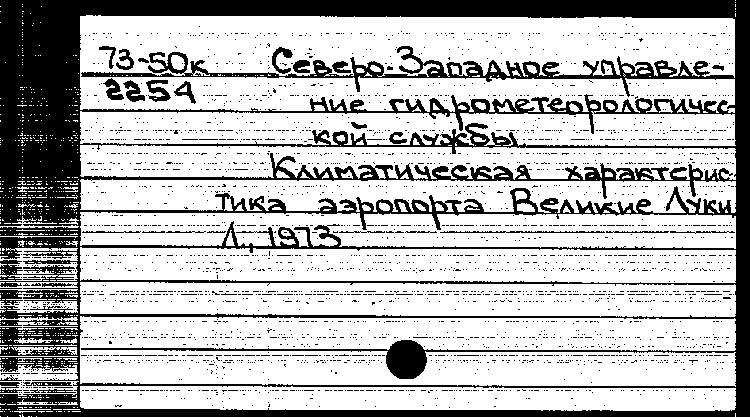 73-50к Северо-Западное управле-
2254 ние гидрометеорологичес-
кой службы.
Климатическая характерис
тика аэропорта Великие Луки
Л., 1973